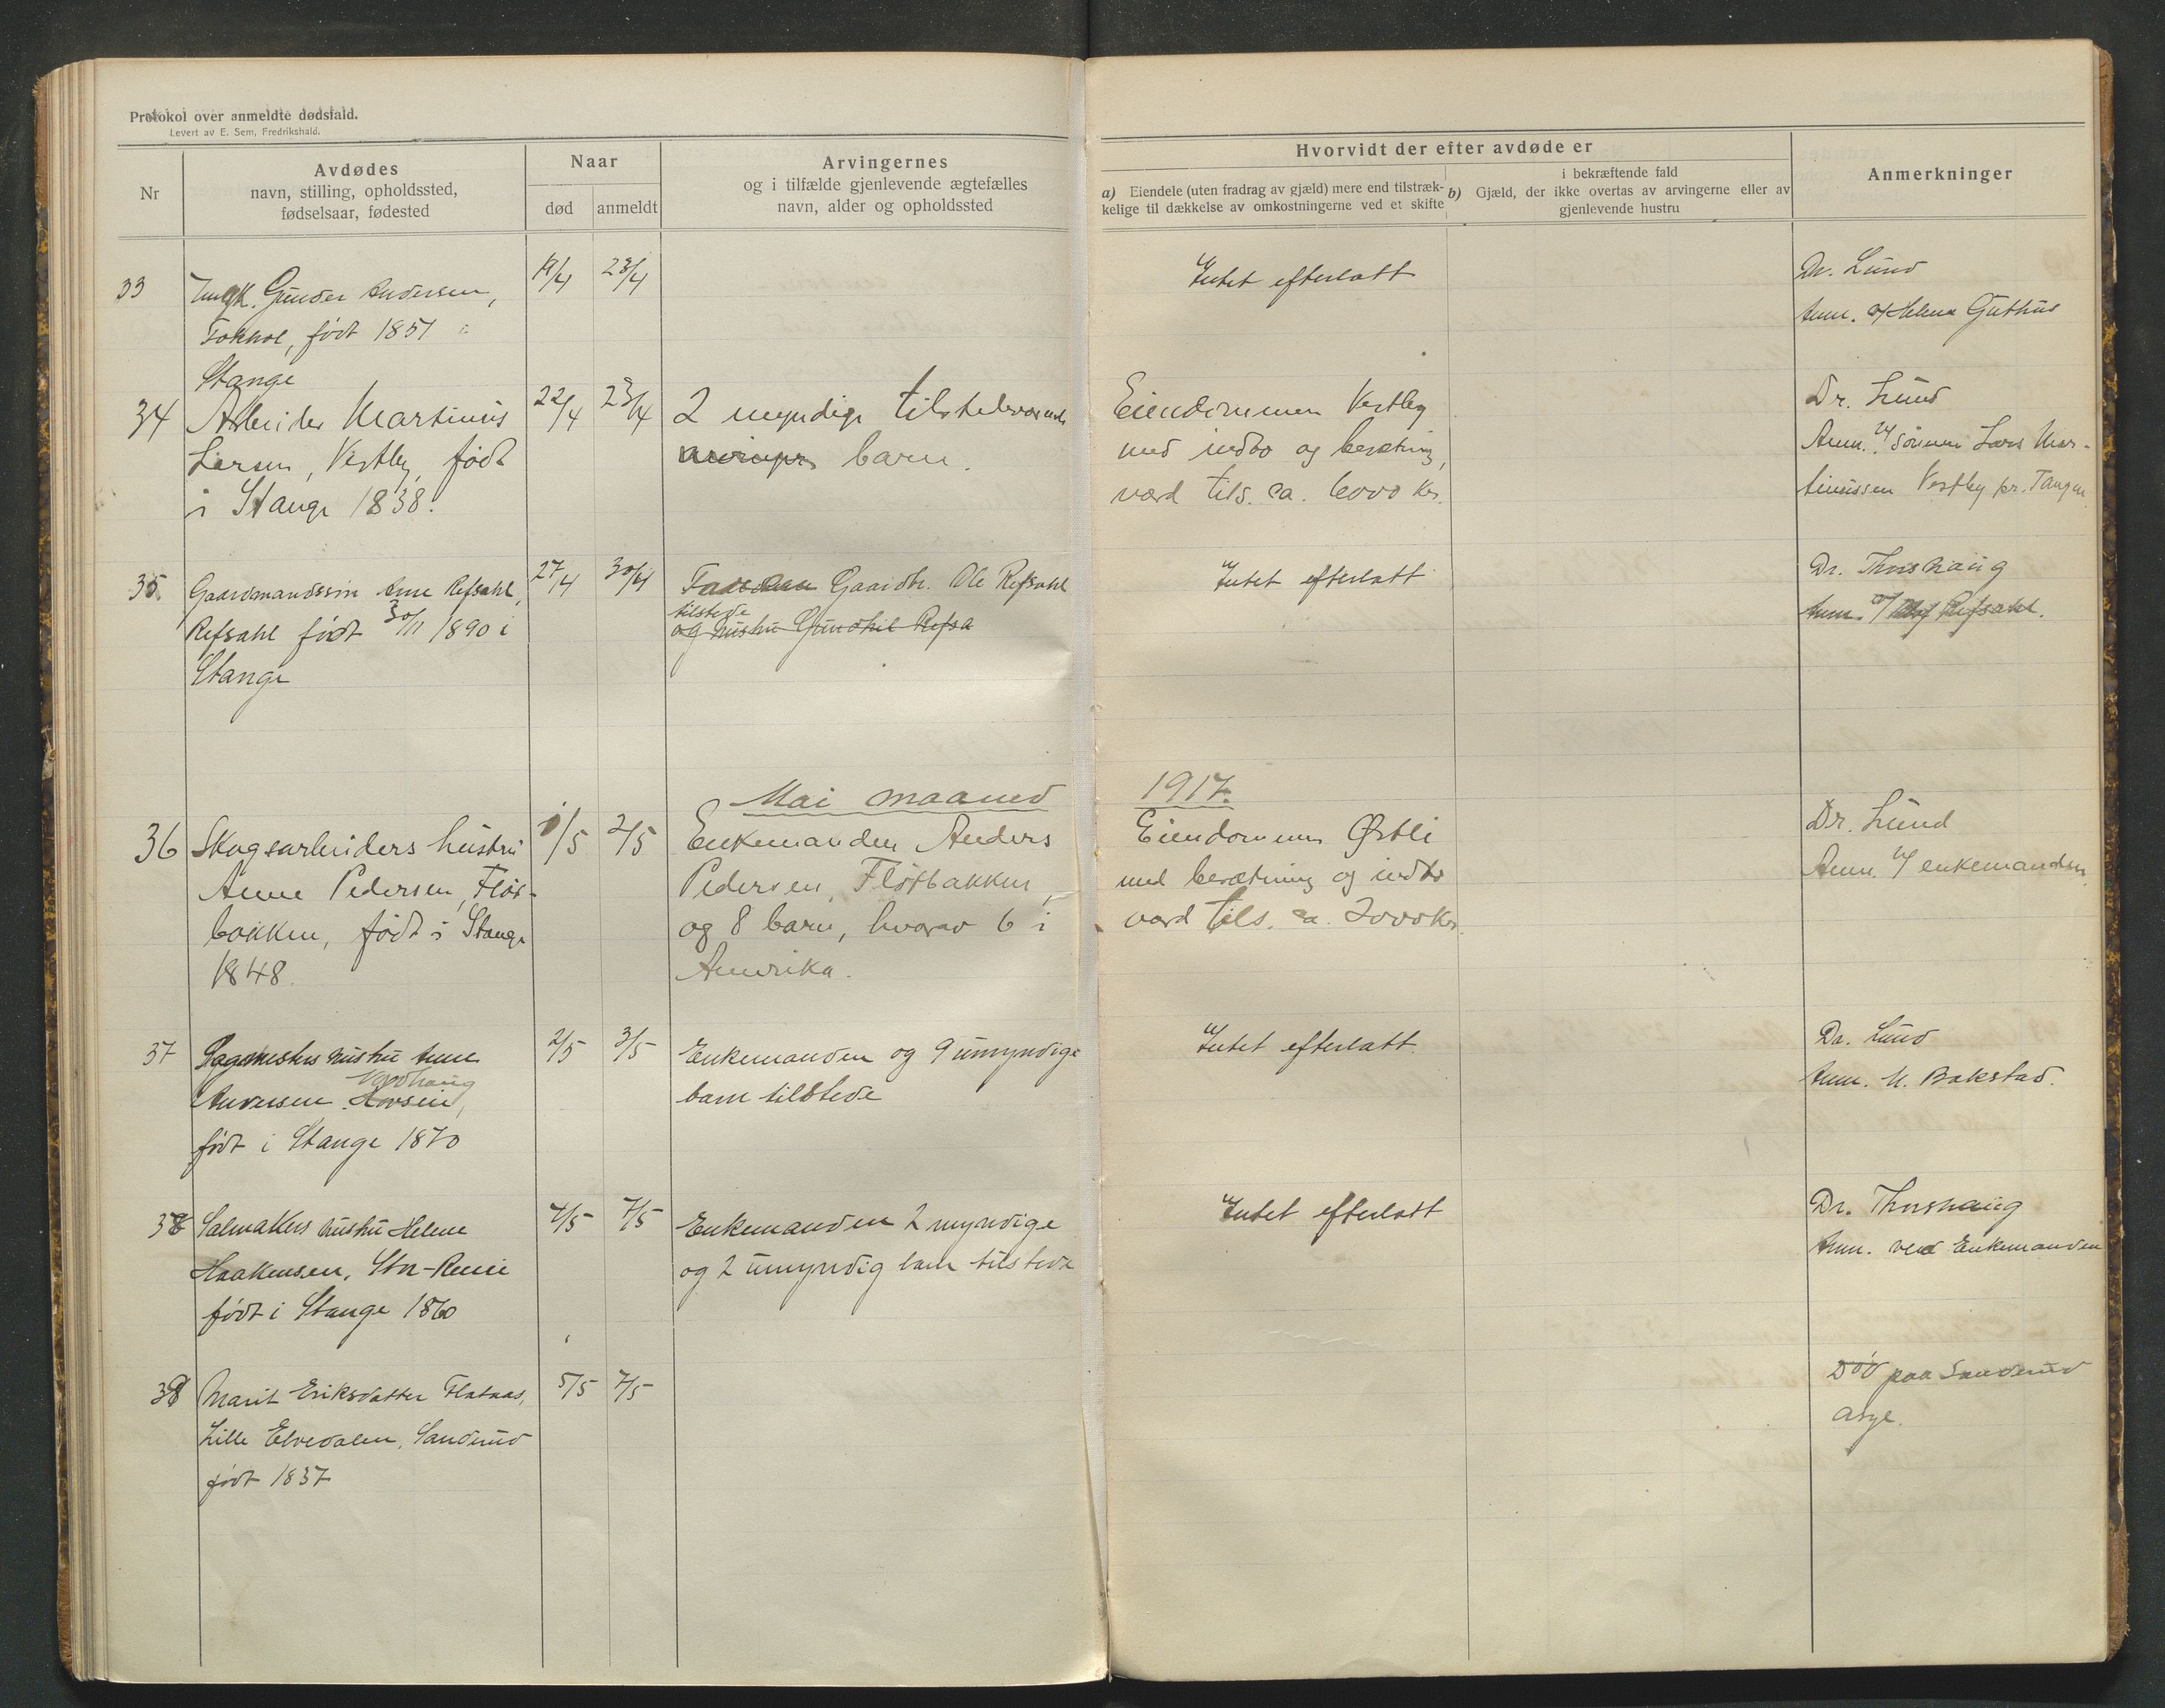 Protokol over anmeldte dødsfald.
Levert av E. Sem, Fredrikshald.
Nr
Avdødes
navn, stilling, opholdssted,
fødselsaar, fødested
Naar
død
anmeldt
Arvingernes
og i tilfælde gjenlevende ægtefælles
navn, alder og opholdssted
Hvorvidt der efter avdøde er
a) Eiendele (uten fradrag av gjæld) mere end tilstræk-
kelige til dækkelse av omkostningerne ved et skifte
i bekræftende fald
b) Gjæld, der ikke overtas av arvingerne eller av
gjenlevende hustru
Anmerkninger
33
Ungk. Gunder Andersen,
født 1851 i
Stange
19/4
23/4
Intet efterlatt
Dr. Lund
Anm. v/ Helena Guthus
34
Arbeider Martinus
Larsen, Vestby, født
i Stange 1838.
22/4
23/4
2 myndige tilstedeværende
arvinger barn.
Eiendommen Vestby
med indbo og besætning,
værd tils. ca. 6000 kr.
Dr. Lund
Anm. v/ sønnen Lars Mar-
tinussen Vestby pr. Tangen
35
Gaardmandssøn Arne Refsahl,
Refsahl født 30/11 1890 i
Stange
27/4
30/4
Faderen Gaardbr. Ole Refsahl
tilstede
og hustru Gundhil Refsa
Intet efterlatt
Dr. Thorshaug
Anm. v/ Refsahl.
Mai maaned
1917.
36
Skogsarbeiders hustru
Anne Pedersen, Fløt-
bakken, født i Stange
1848
1/5
2/5
Enkemanden Anders
Pedersen, Fløtbakken,
og 8 barn, hvorav 6 i
Amerika.
Eiendommen Østli
med besætning og indbo
værd tils. ca. 2000 kr.
Dr. Lund
Anm. v/ enkemanden
37
Sagmesters hustru Anne
Nordhaug
Andersen
født i Stange 1870
2/5
3/5
Enkemanden og 9 umyndige
barn tilstede
Intet efterlatt.
Dr. Lund
Anm. M. Bakstad.
38
Salmakers hustru Helene
Haakensen, Stor-Renie
født i Stange 1860
4/5
7/5
Enkemanden 2 myndige
og 2 umyndig barn tilstede
Intet efterlatt
Dr. Thorshaug
Anm. ved Enkemanden
39
Marit Eriksdatter Flataas,
Lille Elvedalen, Sanderud
født 1837
5/5
7/5
Død paa Sanderud
Asyl.